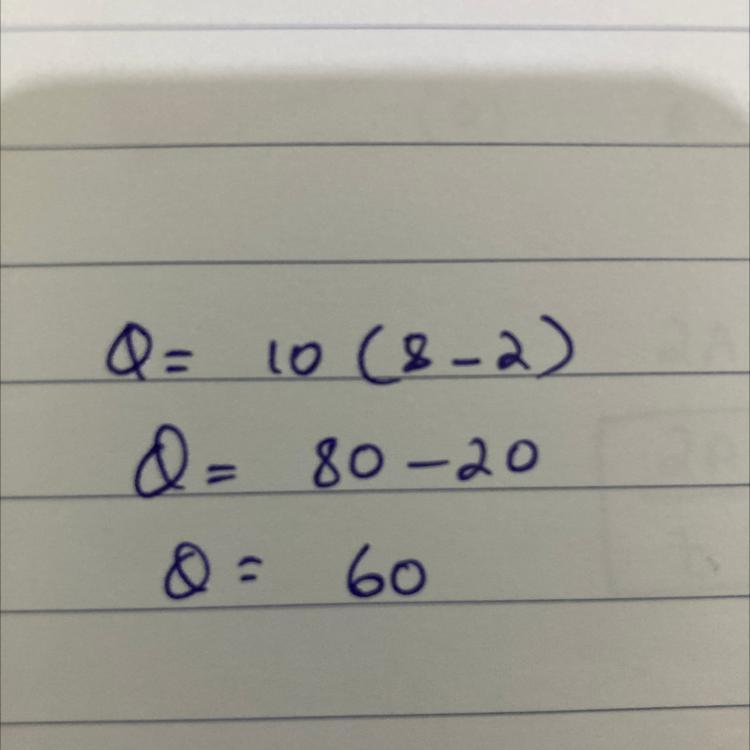 Q = 10 (8 - 2)
Q = 80 - 20
Q = 60